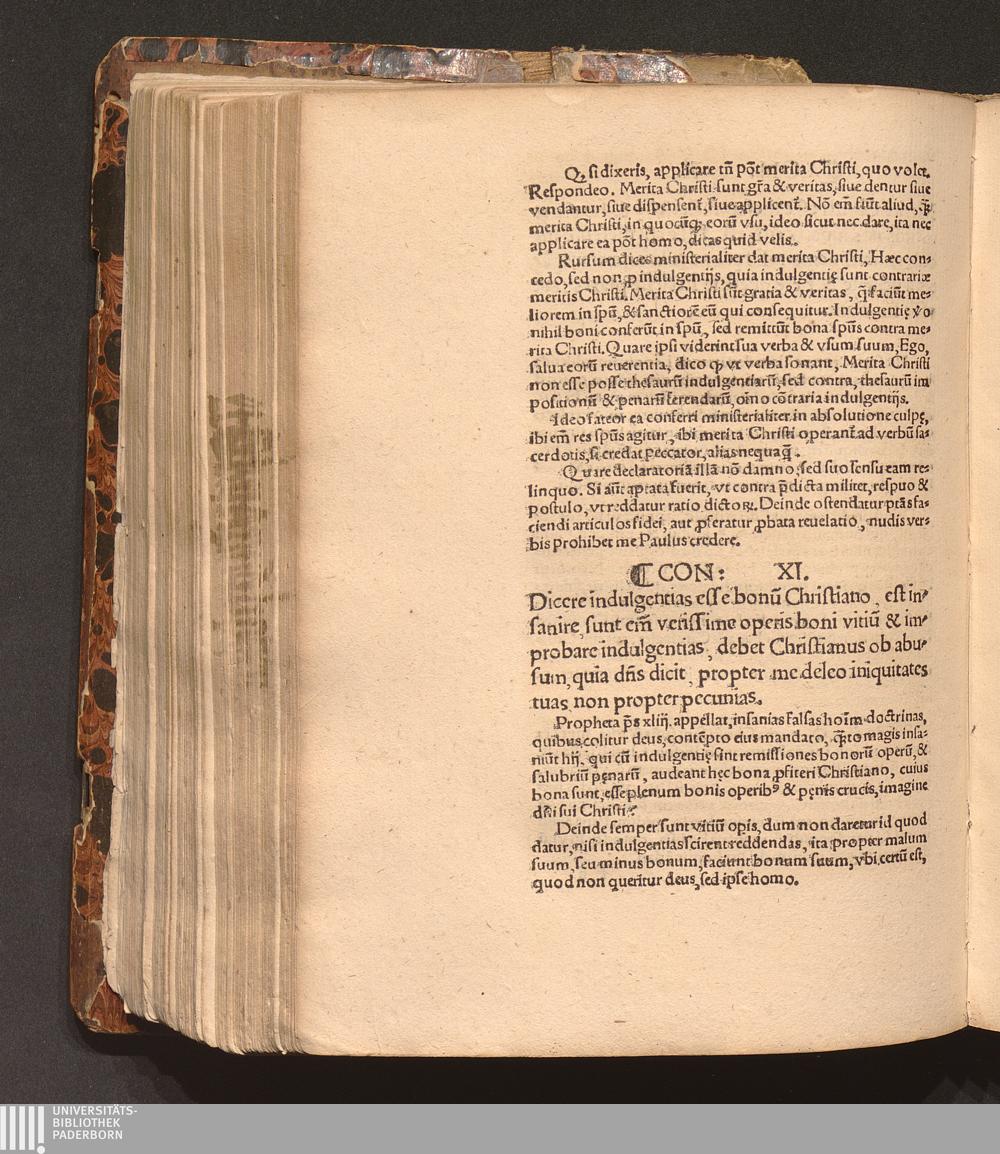 Q, si dixeris, applicare tñ põt merita Christi, quo volet.
Respondeo. Merita Christi sunt gr̃a & veritas, siue dentur siue
vendantur, siue dispensenť, siue applicenť. Nõ em̃ fiũt aliud, q̃ꝫ
merita Christi, in quocũqꝫ eorũ vsu, ideo sicut nec dare, ita nec
applicare ea põt homo, dicas quid velis.
Rursum dices ministerialiter dat merita Christi, Hæc con-
cedo, sed non ꝓ indulgentijs, quia indulgentię sunt contrariæ
meritis Christi. Merita Christi sũt gratia & veritas, q̃ faciũt me-
liorem in spũ, & sanctiorẽ eũ qui consequitur. Indulgentię ꝟo
nihil boni conferũt in spũ, sed remittũt bona spũs contra me-
rita Christi. Quare ipsi viderint sua verba & vsum suum, Ego,
salua eorũ reuerentia, dico ꝙ vt verba sonant, Merita Christi
non esse posse thesaurũ indulgentiarũ, sed contra, thesaurũ im
positionũ & penarũ ferendarũ, oĩno cõtraria indulgentijs.
Ideo fateor ea conferri ministerialiter in absolutione culpę,
ibi em̃ res spũs agitur, ibi merita Christi operanť ad verbũ sa-
cerdotis, si credat peccator, alias nequaq̃.
Quare declaratoriã illã nõ damno, sed suo sensu eam re-
linquo. Si aũt aptata fuerit, vt contra p̃dicta militet, respuo &
postulo, vt reddatur ratio dictoꝝ. Deinde ostendatur ptãs fa-
ciendi articulos fidei, aut ꝓferatur ꝓbata reuelatio, nudis ver-
bis prohibet me Paulus credere.
⁋ CON: XI.
Dicere indulgentias esse bonũ Christiano, est in-
sanire, sunt em̃ verissime operis boni vitiũ & im-
probare indulgentias, debet Christianus ob abu-
sum, quia dñs dicit, propter me deleo iniquitates
tuas non propter pecunias.
Propheta ps̃ xliij. appellat, insanias falsas hoĩm doctrinas,
quibus colitur deus, contẽpto eius mandato, q̃ꝫto magis insa-
niũt hij, qui cũ indulgentię sint remissiones bonorũ operũ, &
salubriũ pęnarũ, audeant hęc bona ꝓfiteri Christiano, cuius
bona sunt, esse plenum bonis operibꝰ & pęnis crucis, imagine
dñi sui Christi?
Deinde semper sunt vitiũ opis, dum non daretur id quod
datur, nisi indulgentias scirent reddendas, ita propter malum
suum, seu minus bonum, faciunt bonum suum, vbi certũ est,
quod non queritur deus, sed ipse homo.
UNIVERSITÄTS-
BIBLIOTHEK
PADERBORN